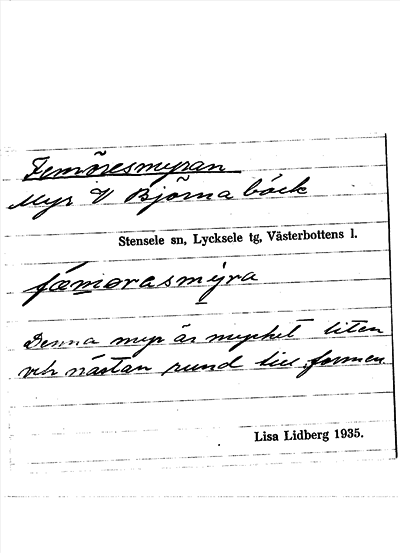 Femöresmyran
Myr V Björnabäck
Stensele sn, Lycksele tg, Västerbottens l.
fæmørasmýra
Denna myr är mycket liten
och nästan rund till formen.
Lisa Lidberg 1935.